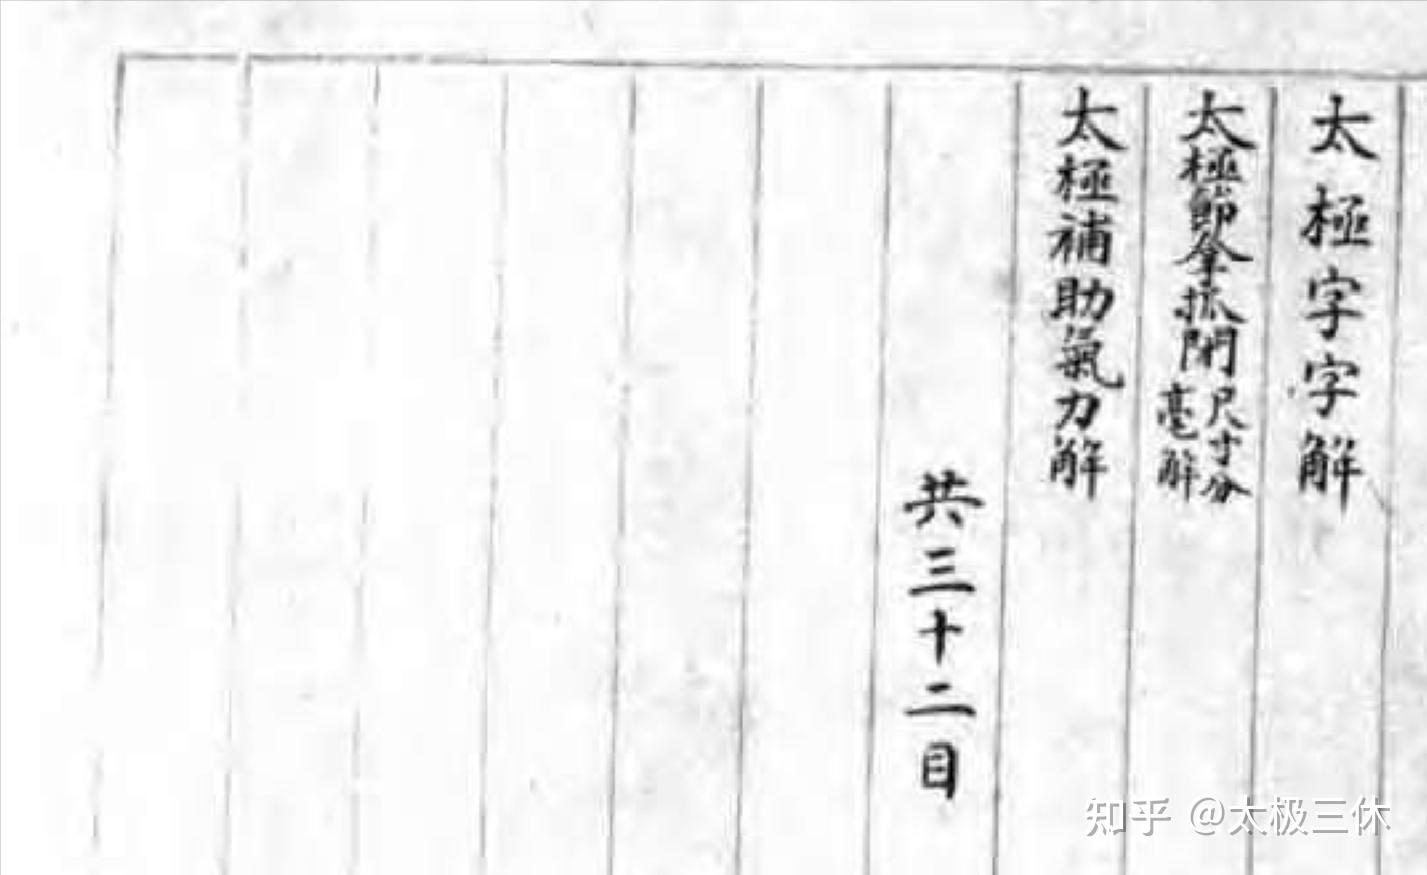 太極字字解
太極節拿抓閉尺寸分毫解
太極補助氣力解
共三十二目
知乎 @太极三休